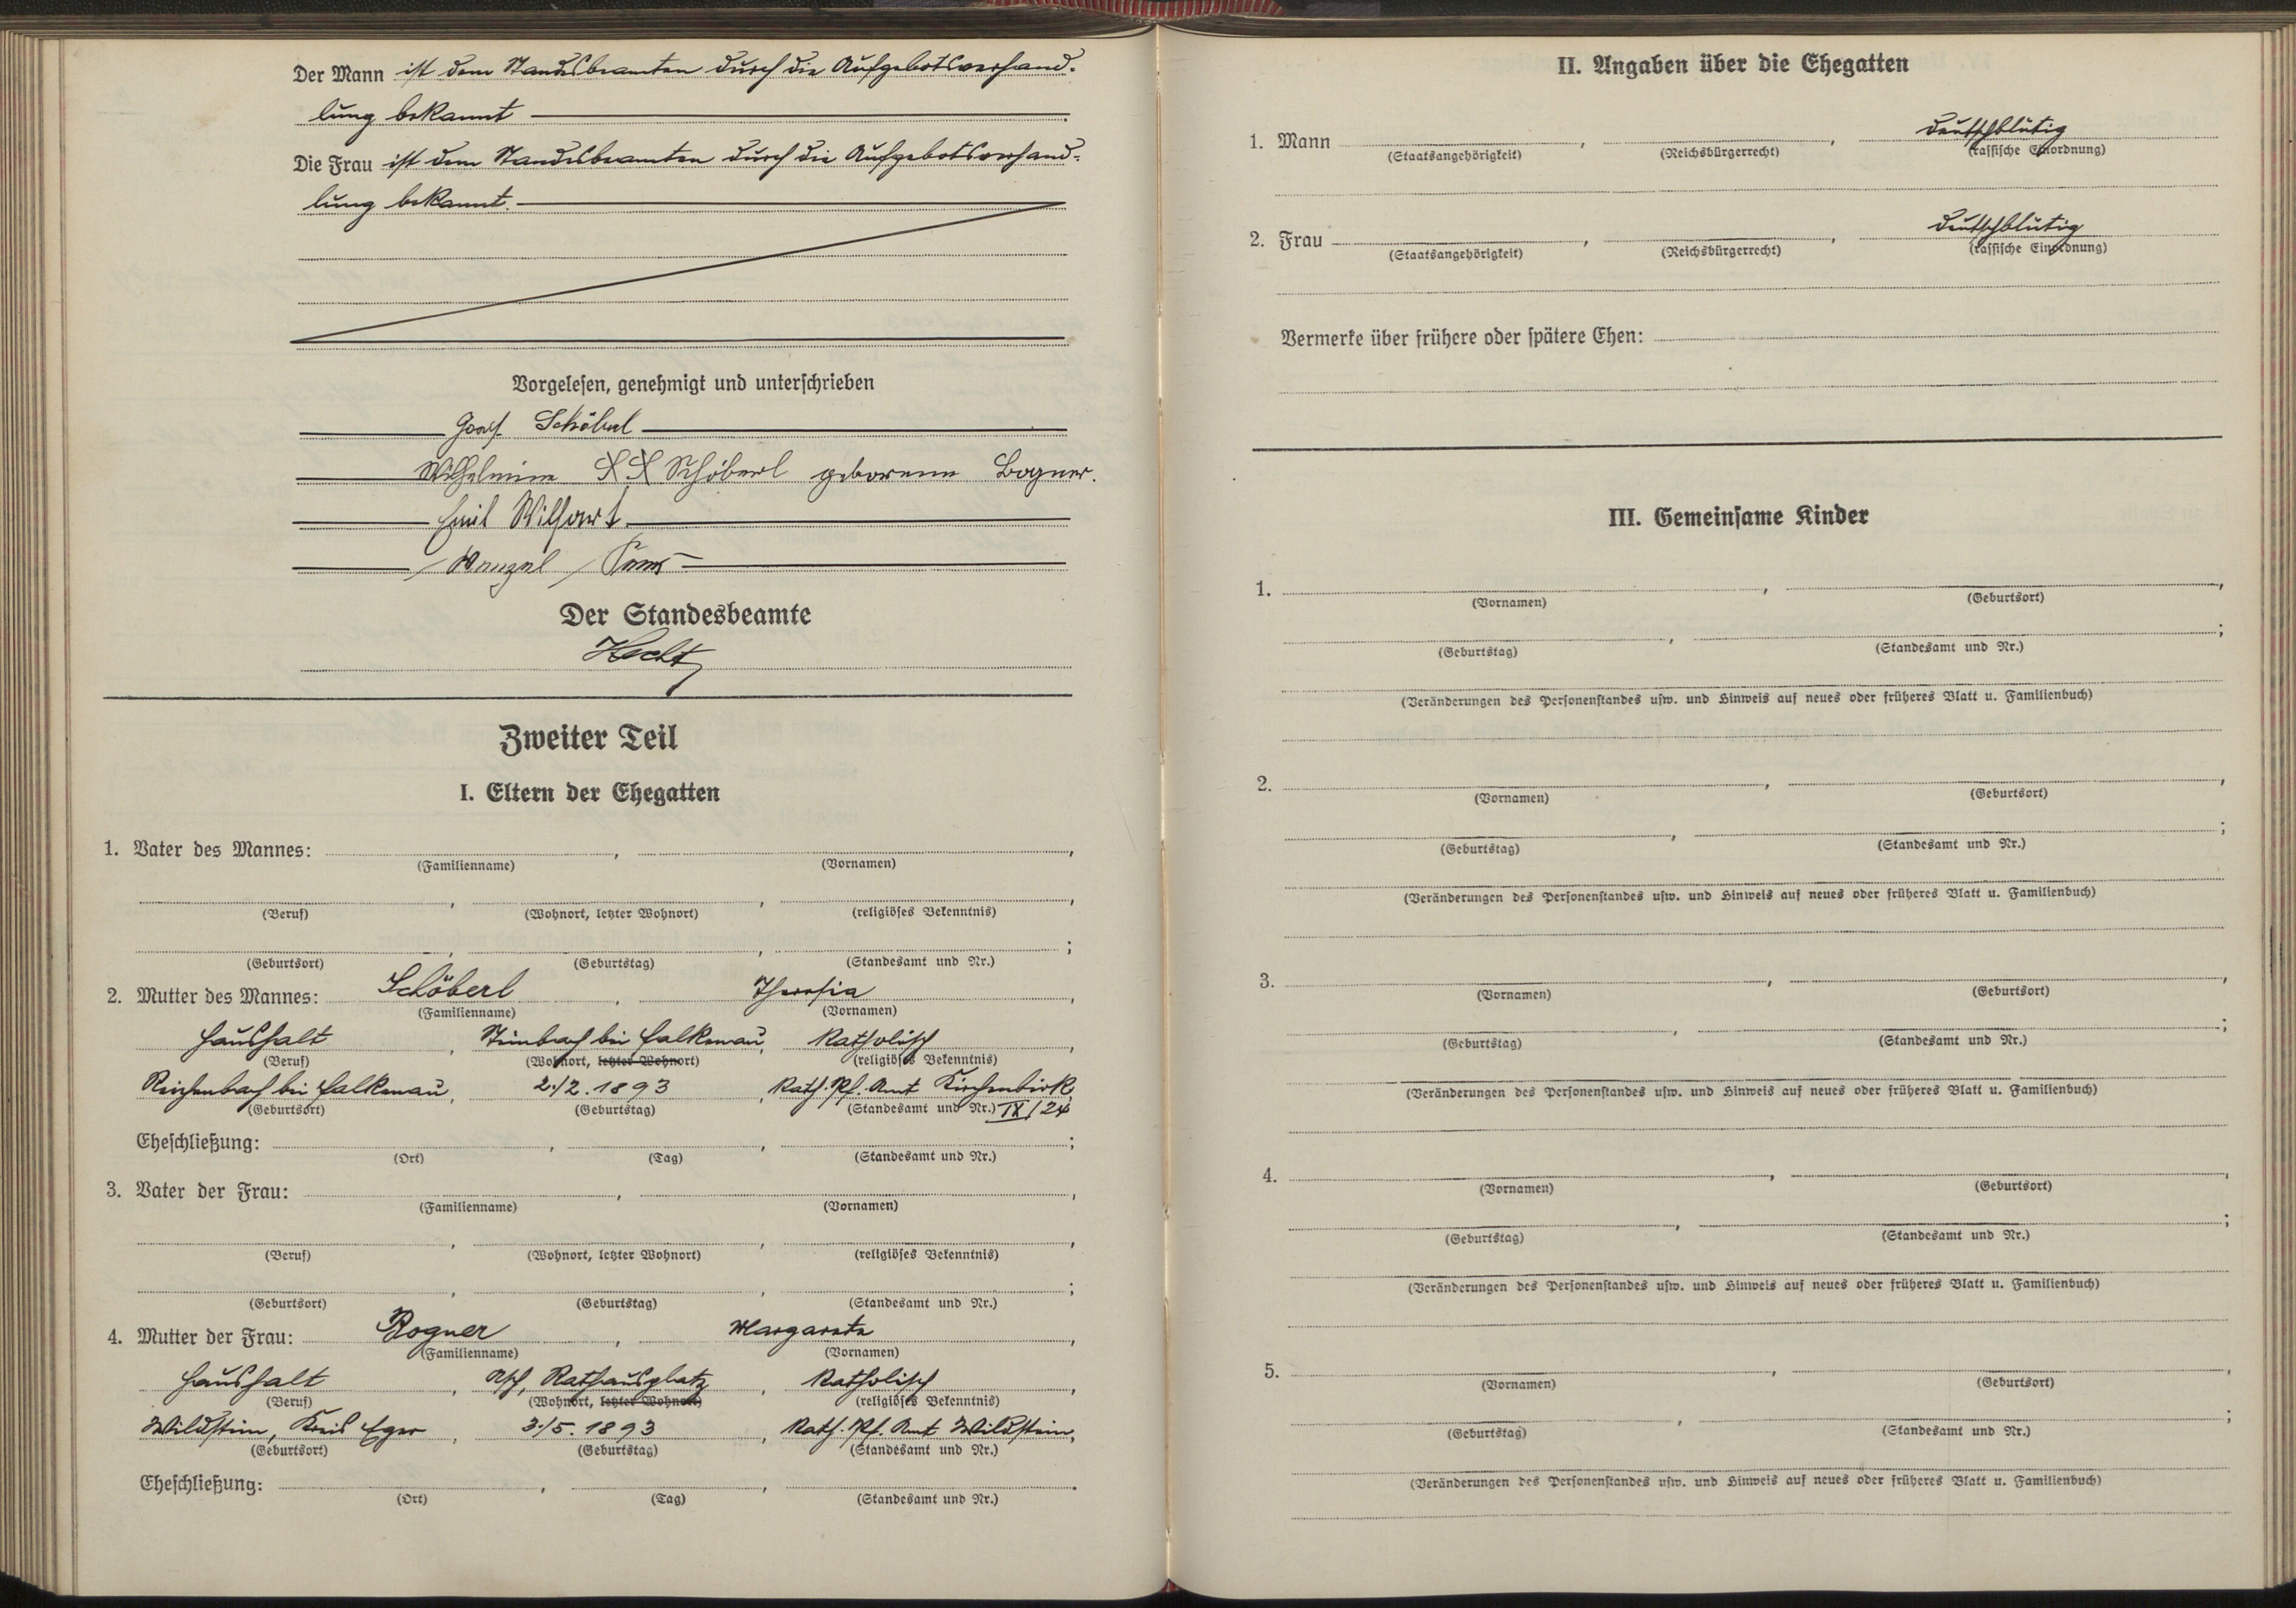 Der Mann ist dem Standesbeamten durch die Aufgebotsverhand-
lung bekannt
Die Frau ist dem Standesbeamten durch die Aufgebotsverhand-
lung bekannt.
Vorgelesen, genehmigt und unterschrieben
Schöberl
Wilhelmine Schöberl geborene Bogner.
Emil Wilfert
Wenzel
Der Standesbeamte
Hecht
Zweiter Teil
I. Eltern der Ehegatten
1. Vater des Mannes: , ,
(Familienname) (Vornamen)
, , ,
(Beruf) (Wohnort, letzter Wohnort) (religiöses Bekenntnis)
, , ;
(Geburtsort) (Geburtstag) (Standesamt und Nr.)
2. Mutter des Mannes: Schöberl , Theresia ,
(Familienname) (Vornamen)
Haushalt , Steinbach bei Falkenau, katholisch ,
(Beruf) (Wohnort, letzter Wohnort) (religiöses Bekenntnis)
Reichenbach bei Falkenau, 2./2. 1893 , Kath. Pf. Amt Kirchenbirk,
(Geburtsort) (Geburtstag) (Standesamt und Nr.) IX/24
Eheschließung: , , ;
(Ort) (Tag) (Standesamt und Nr.)
3. Vater der Frau: , ,
(Familienname) (Vornamen)
, , ,
(Beruf) (Wohnort, letzter Wohnort) (religiöses Bekenntnis)
, , ;
(Geburtsort) (Geburtstag) (Standesamt und Nr.)
4. Mutter der Frau: Bogner , Margareta ,
(Familienname) (Vornamen)
Haushalt , Asch, Rathausplatz , katholisch ,
(Beruf) (Wohnort, letzter Wohnort) (religiöses Bekenntnis)
Wildstein, Kreis Eger , 3./5. 1893 , Kath. Pf. Amt Wildstein,
(Geburtsort) (Geburtstag) (Standesamt und Nr.)
Eheschließung: , , .
(Ort) (Tag) (Standesamt und Nr.)
II. Angaben über die Ehegatten
1. Mann , , deutschblütig
(Staatsangehörigkeit) (Reichsbürgerrecht) (rassische Einordnung)
2. Frau , , deutschblütig
(Staatsangehörigkeit) (Reichsbürgerrecht) (rassische Einordnung)
Vermerke über frühere oder spätere Ehen:
III. Gemeinsame Kinder
1. , ,
(Vornamen) (Geburtsort)
, ;
(Geburtstag) (Standesamt und Nr.)
(Veränderungen des Personenstandes usw. und Hinweis auf neues oder früheres Blatt u. Familienbuch)
2. , ,
(Vornamen) (Geburtsort)
, ;
(Geburtstag) (Standesamt und Nr.)
(Veränderungen des Personenstandes usw. und Hinweis auf neues oder früheres Blatt u. Familienbuch)
3. , ,
(Vornamen) (Geburtsort)
, ;
(Geburtstag) (Standesamt und Nr.)
(Veränderungen des Personenstandes usw. und Hinweis auf neues oder früheres Blatt u. Familienbuch)
4. , ,
(Vornamen) (Geburtsort)
, ;
(Geburtstag) (Standesamt und Nr.)
(Veränderungen des Personenstandes usw. und Hinweis auf neues oder früheres Blatt u. Familienbuch)
5. , ,
(Vornamen) (Geburtsort)
, ;
(Geburtstag) (Standesamt und Nr.)
(Veränderungen des Personenstandes usw. und Hinweis auf neues oder früheres Blatt u. Familienbuch)